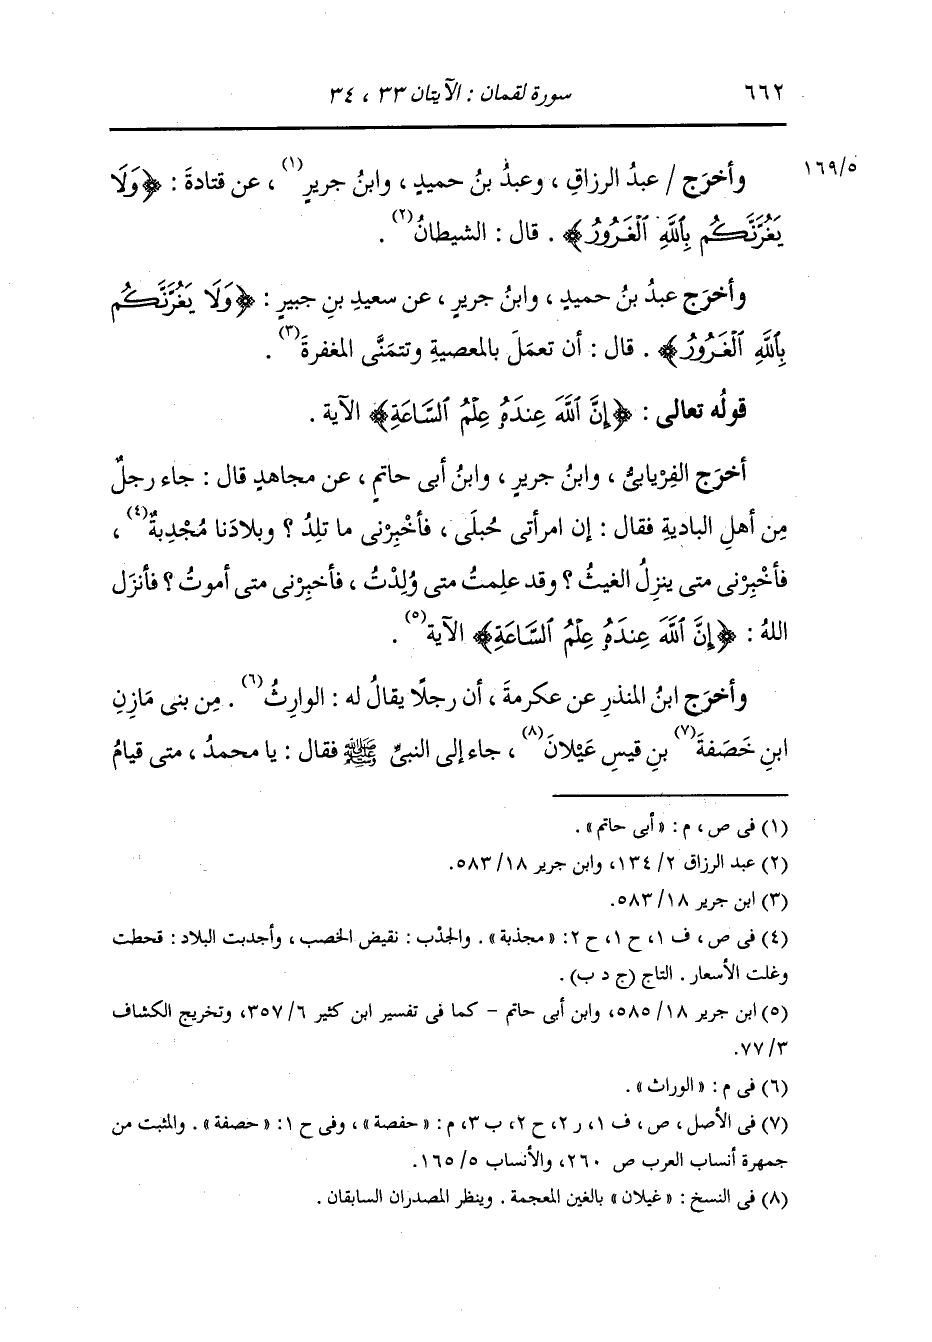 ٦٦٢ سورة لقمان : الآيتان ٣٣ ، ٣٤
١٦٩/٥ وأخرَج / عبدُ الرزاقِ ، وعبدُ بنُ حميدٍ ، وابنُ جريرٍ(١) ، عن قتادةَ : ﴿وَلَا
يَغُرَّنَّكُم بِاللَّهِ الْغَرُورُ﴾ . قال : الشيطانُ(٢) .
وأخرَج عبدُ بنُ حميدٍ ، وابنُ جريرٍ ، عن سعيدِ بنِ جبيرٍ : ﴿وَلَا يَغُرَّنَّكُم
بِاللَّهِ الْغَرُورُ﴾ . قال : أن تعمَلَ بالمعصيةِ وتتمَنَّى المغفرةَ(٣) .
قولُه تعالى : ﴿إِنَّ اللَّهَ عِندَهُ عِلْمُ السَّاعَةِ﴾ الآية .
أخرَج الفِرْيابىُّ ، وابنُ جريرٍ ، وابنُ أبى حاتمٍ ، عن مجاهدٍ قال : جاء رجلٌ
مِن أهلِ الباديةِ فقال : إن امرأتى حُبلَى ، فأَخْبِرْنى ما تلِدُ ؟ وبلادَنا مُجْدِبةٌ(٤) ،
فأَخْبِرْنى متى ينزِلُ الغيثُ ؟ وقد علِمتُ متى وُلِدْتُ ، فأخبِرْنى متى أموتُ ؟ فأنزَل
اللهُ : ﴿إِنَّ اللَّهَ عِندَهُ عِلْمُ السَّاعَةِ﴾ الآيةَ(٥) .
وأخرَج ابنُ المنذرِ عن عكرمةَ ، أن رجلًا يقالُ له : الوارِثُ(٦) . مِن بنى مَازِنِ
ابنِ خَصَفةَ(٧) بنِ قيسِ عَيْلانَ(٨) ، جاء إلى النبىِّ ﷺ فقال : يا محمدُ ، متى قيامُ
(١) فى ص ، م : «أبى حاتم» .
(٢) عبد الرزاق ٢/ ١٣٤، وابن جرير ١٨/ ٥٨٣.
(٣) ابن جرير ١٨/ ٥٨٣.
(٤) فى ص ، ف ١، ح ١، ح ٢: «مجذبة» . والجدْب : نقيض الخصب ، وأجدبت البلاد : قحطت
وغلت الأسعار . التاج (ج د ب) .
(٥) ابن جرير ١٨/ ٥٨٥، وابن أبى حاتم - كما فى تفسير ابن كثير ٦/ ٣٥٧، وتخريج الكشاف
٣/ ٧٧.
(٦) فى م : «الوراث» .
(٧) فى الأصل ، ص ، ف ١، ر ٢، ح ٢، ب ٣، م : «حفصة» ، وفى ح ١: «حصفة» . والمثبت من
جمهرة أنساب العرب ص ٢٦٠، والأنساب ٥/ ١٦٥.
(٨) فى النسخ : «غيلان» بالغين المعجمة . وينظر المصدران السابقان .